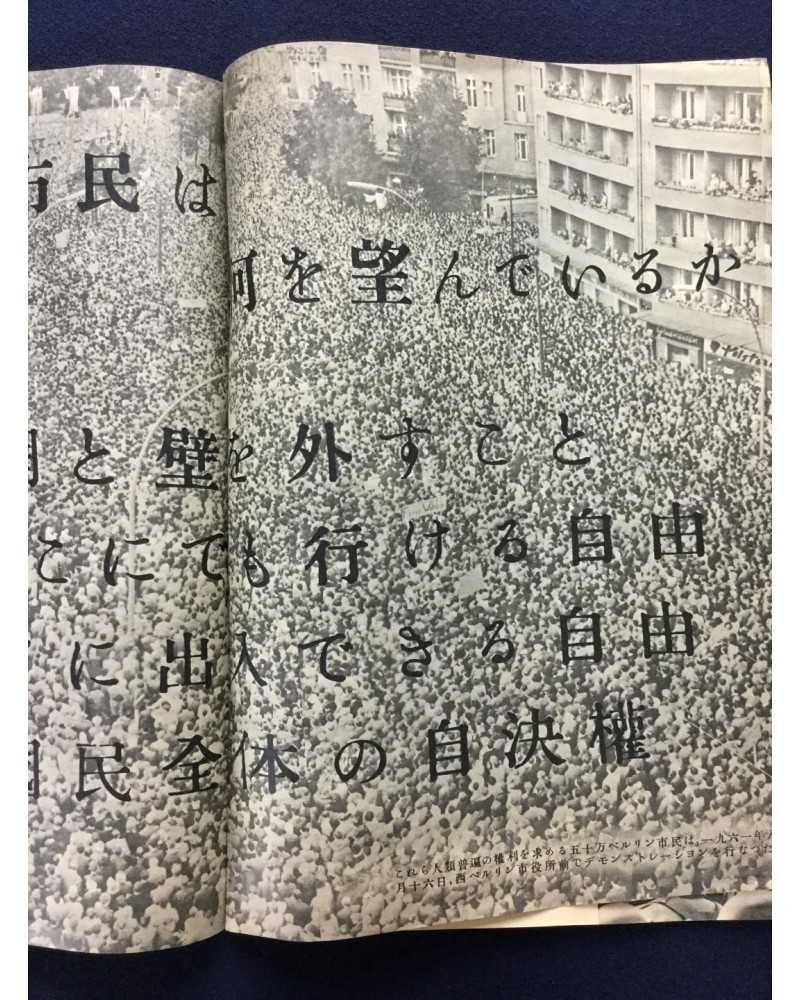 市民は
何を望んでいるか
と壁を外すこと
こにでも行ける自由
に出入できる自由
民全体の自決權
これら人類普遍の權利を求める五十万ベルリン市民は、一九六一年八
月十六日、西ベルリン市役所前でデモンストレーションを行なった